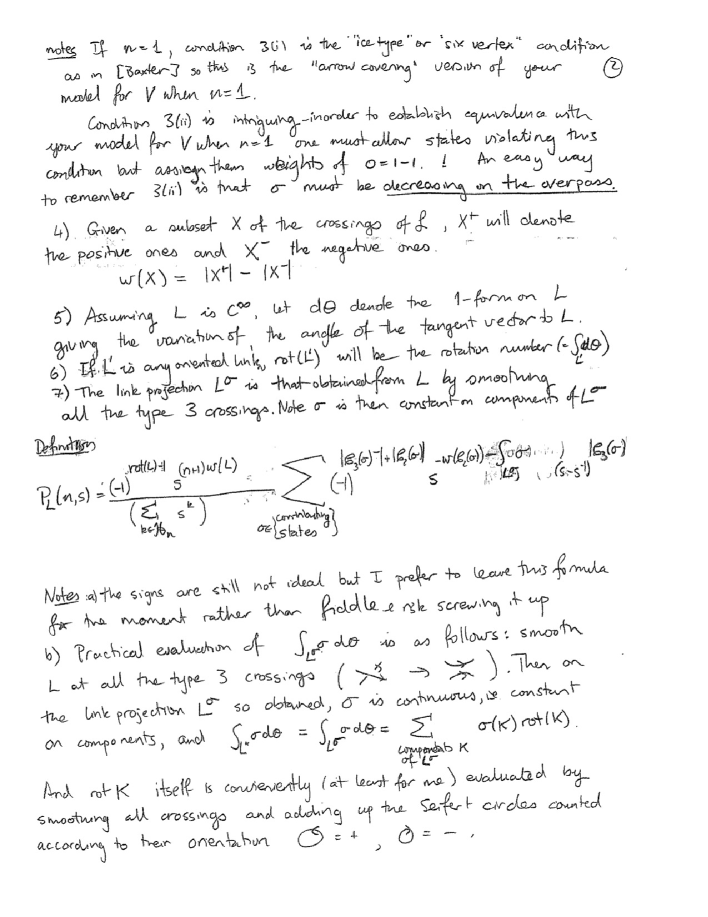 notes If n=1, condition 3(i) is the "ice type" or "six vertex" condition
as in [Baxter] so this is the "arrow covering" version of your ②
model for V when n=1.
Condition 3(ii) is intriguing - inorder to establish equivalence with
your model for V when n=1 one must allow states violating this
condition but assign them weights of 0=1-1. ! An easy way
to remember 3(ii) is that σ must be decreasing on the overpass.
4) Given a subset X of the crossings of L, X⁺ will denote
the positive ones and X⁻ the negative ones.
w(X) = |X⁺| - |X⁻|
5) Assuming L is C^∞, let dθ denote the 1-form on L
giving the variation of, the angle of the tangent vector to L.
6) If L' is any oriented link, rot(L') will be the rotation number (= ∫_L' dθ)
7) The link projection L^σ is that obtained from L by smoothing
all the type 3 crossings. Note σ is then constant on components of L^σ
Definition
P_L(n,s) = (-1)^{rot(L)+1} s^{(n+1)w(L)} / (Σ s^k) Σ_{σ∈{contributing states}} (-1) s (s-s^{-1})
Notes: a) the signs are still not ideal but I prefer to leave this formula
for the moment rather than fiddle & risk screwing it up
b) Practical evaluation of ∫_{L^σ} σ dθ is as follows: smooth
L at all the type 3 crossings ( → ). Then on
the link projection L^σ so obtained, σ is continuous, ie constant
on components, and ∫_{L^σ} σ dθ = ∫_{L^σ} σ dθ = Σ_{components K of L^σ} σ(K) rot(K).
And rot K itself is conveniently (at least for me) evaluated by
smoothing all crossings and adding up the Seifert circles counted
according to their orientation = + , = - ,